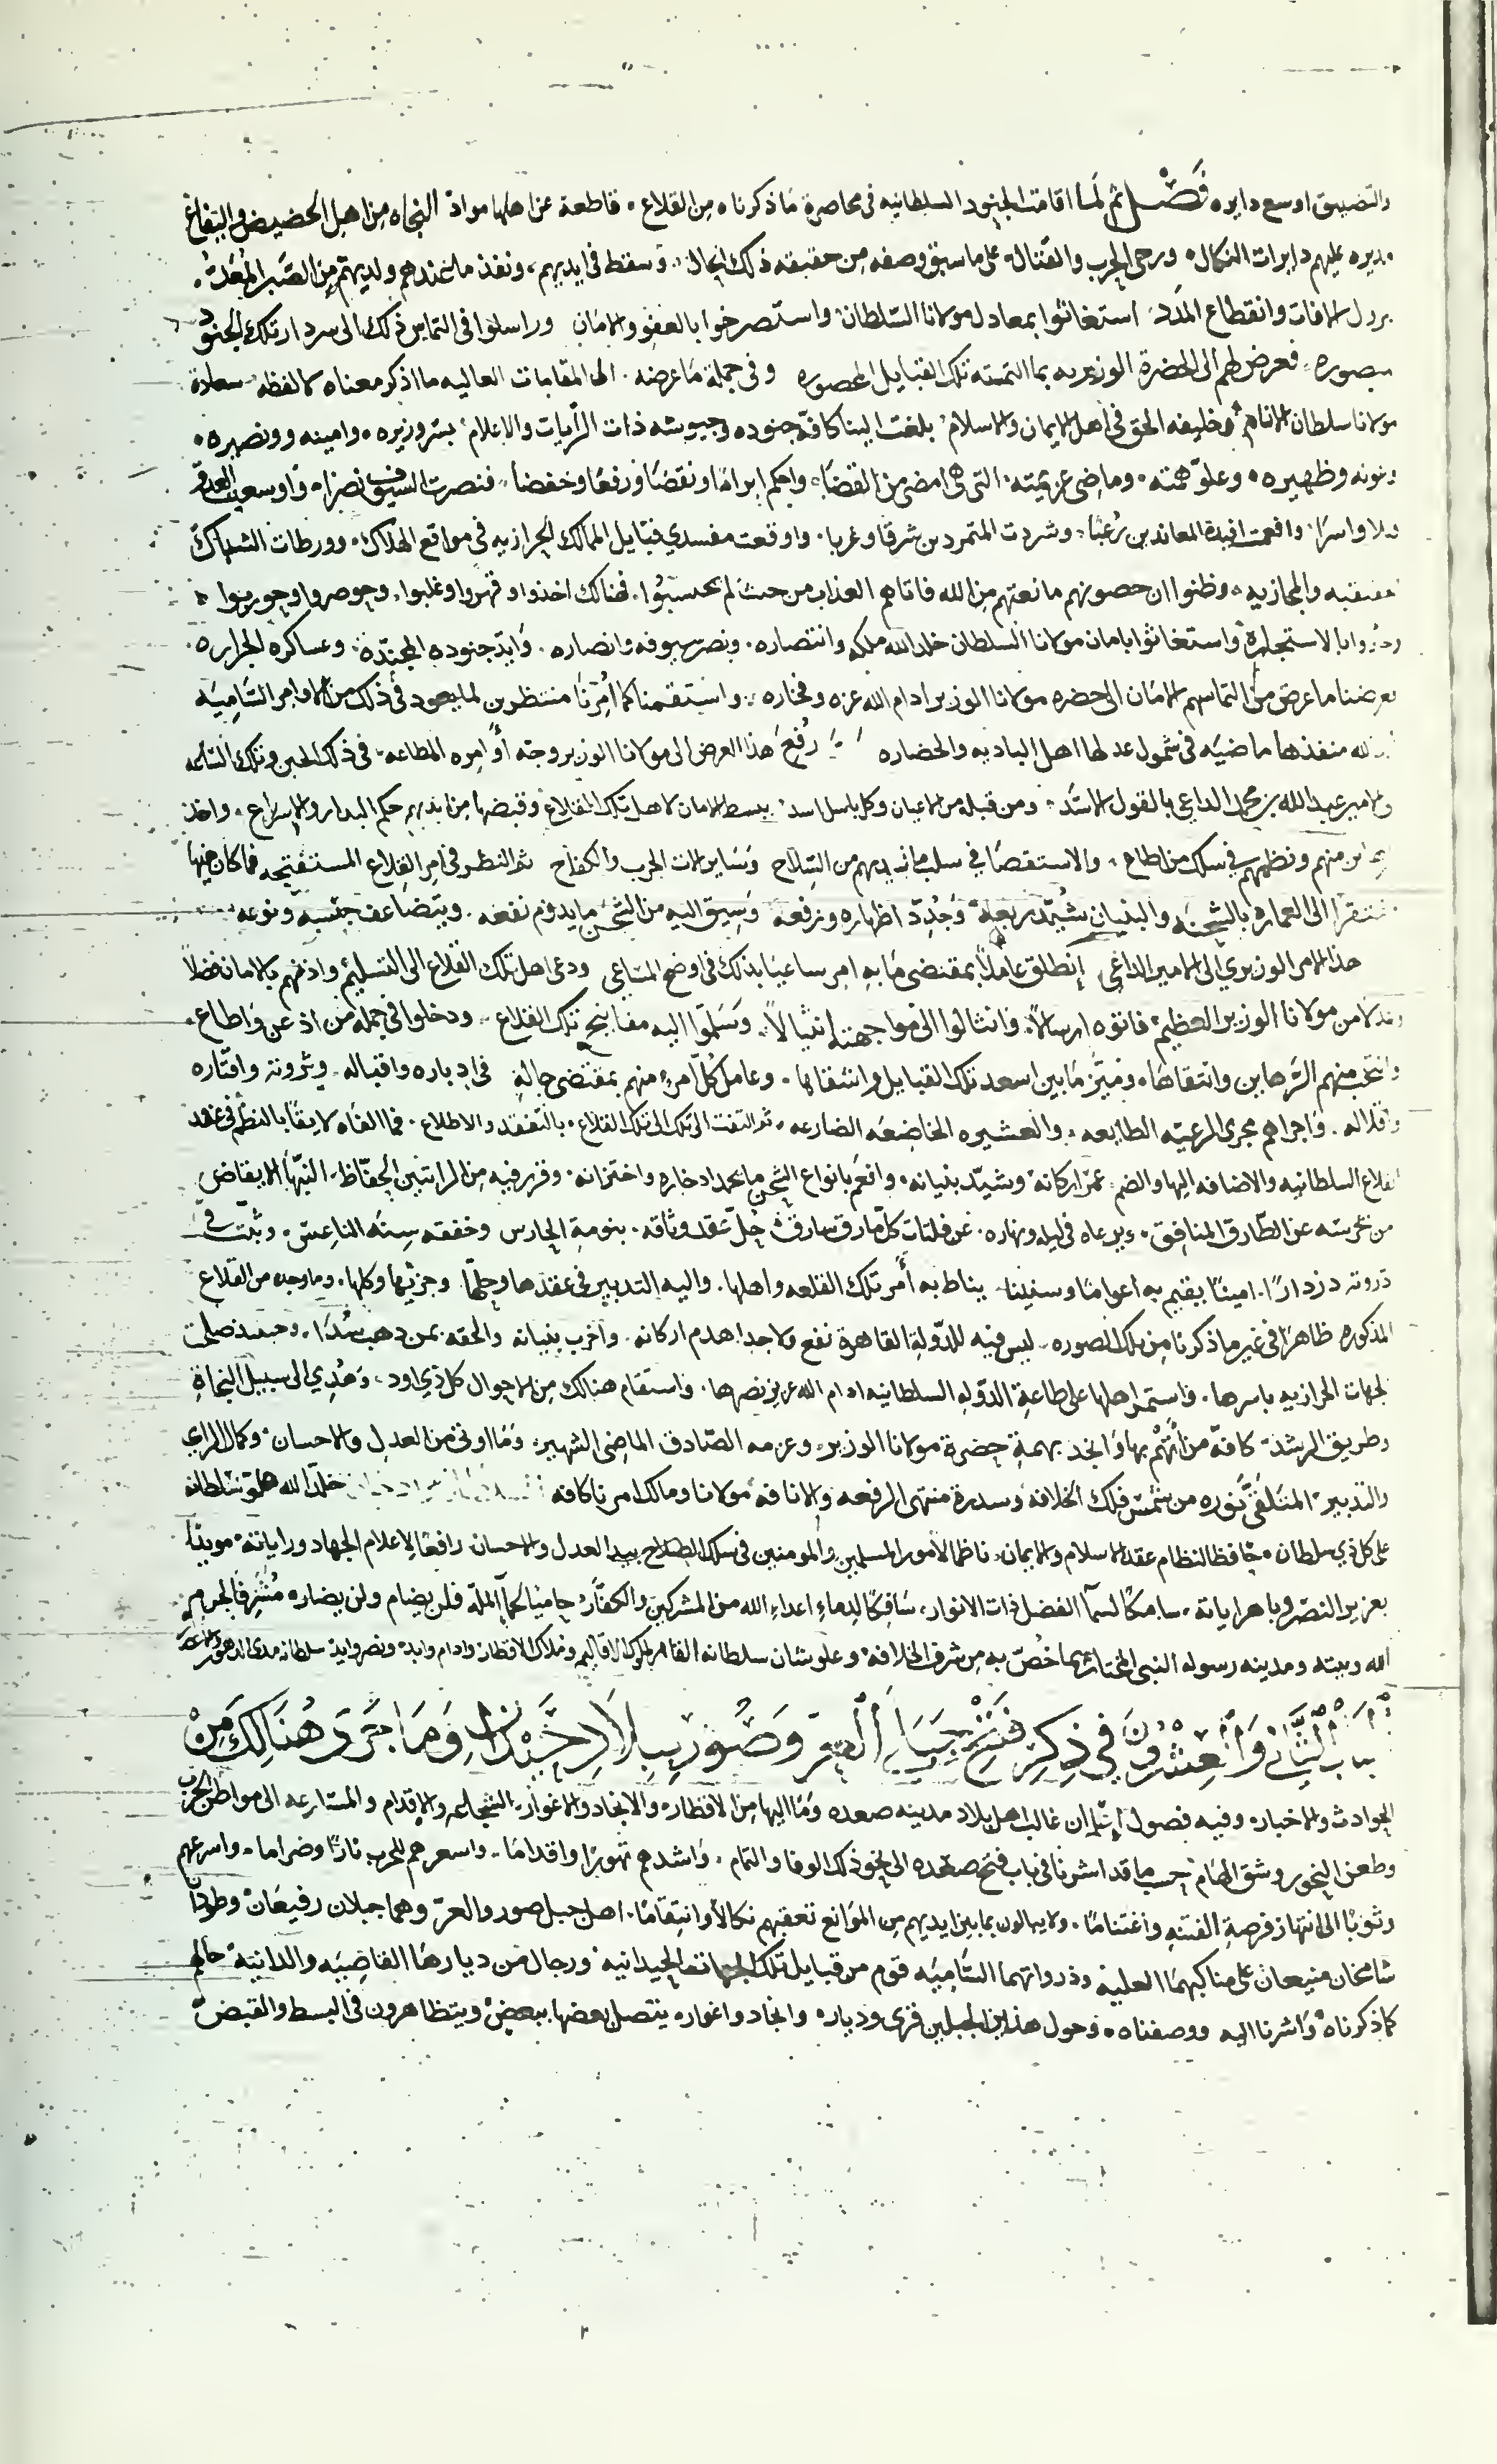 والتضييق اوسع دايره فَصْل ثم لما اقامت الجنود السلطانيه في محاصرة ما ذكرناه من القلاع قاطعة عن اهلها مواد النجاه من اهل الحضيض واليفاع
مديره عليهم دايرات النكال ورحى الحرب والقتال على ما سبق وصفه من حقيقه ذلك الحال وسقط في ايديهم ونفذ ما عندهم ولديهم من الصبر المعد
الافات وانقطاع المدد استغاثوا بمعادل مولانا السلطان واستصرخوا بالعفو والامان وراسلوا في التماس ذلك الى سردار تلك الجنود
فعرض لهم الى الحضرة الوزيريه بما التمسته تلك القبايل المحصوره وفي جملة ما عرضه الى المقامات العاليه ما اذكر معناه لا لفظه سعادة
مولانا سلطان الانام وخليفه الحق في اهل الايمان والاسلام بلغت الينا كافة جنوده وجيوشه ذات الرايات والاعلام بسر وزيره وامينه ونصيره
وظهيره وعلو همته وماضي عزيمته التي هي امضى من القضا واحكم ابراما ونقضا ورفعا وخفضا فنصرت السيوف نصرا واوسعت العدو
واسرا وافعمت افيدة المعاندين رعبا وشردت المتمردين شرقا وغربا واوقعت مفسدي قبايل الممالك الحرازيه في مواقع الهلاك وورطات الشباك
والمجازيه وظنوا ان حصونهم مانعتهم من الله فاتاهم العذاب من حيث لم يحتسبوا فهنالك اخذوا وقهروا وغلبوا وحوصروا وحوربوا
بالاستجاره واستغاثوا بامان مولانا السلطان خلد الله ملكه وانتصاره ونصر سيوفه وانصاره وايد جنوده المجندة وعساكره الجراره
فعرضنا ما عرض من التماسهم الامان الى حضره مولانا الوزير ادام الله عزه وفخاره واستقمنا كما امرنا منتظرين لما يعود في ذلك من الاوامر الساميه
الله منفذها ماضيه في شمول عدلها اهل الباديه والحضاره رفع هذا العرض الى مولانا الوزير وجه اوامره المطاعه في ذلك الحين وتلك الساعه
والامير عبد الله بن محمد الداعي بالقول الاسد ومن قبله من الاعيان وكل باسل اسد ببسط الامان لاهل تلك القلاع وقبضها من ايديهم حكم البدار والاسراع واخذ
منهم ونظمهم في سلك من اطاع والاستقصا في سلب ما بايديهم من السلاح وساير الات الحرب والكفاح ثم النظر في امر القلاع المستفتحه فما كان منها
مفتقرا الى العماره بالشحنه والبنيان شيد ربعه وجدد اظهاره ورفعه وسيق اليه من الشحن ما يدوم نفعه ويتضاعف جنسه ونوعه
هذا الامر الوزيري الى الامير الداعي انطلق عاملا بمقتضى ما به امر ساعيا بذلك في اوضح المساعي ودعى اهل تلك القلاع الى التسليم واذنهم بالامان فضلا
وعدلا من مولانا الوزير العظيم فاتوه ارسالا وانثالوا الى مواجهته انثيالا وسلموا اليه مفاتيح تلك القلاع ودخلوا في جملة من اذعن واطاع
وانتخب منهم الرهاين وانتقاها وميز ما بين اسعد تلك القبايل واشقاها وعامل كل امرء منهم بمقتضى حاله في ادباره واقباله وثروته واقتاره
واقلاله واجراهم مجرى الرعيه الطايعه والعشيره الخاضعه الضارعه ثم التفت الى تلك القلاع بالتفقد والاطلاع فما الفاه لايقا بالنظم في عقد
القلاع السلطانيه والاضافه اليها والضم عمر اركانه وشيد بنيانه وافعم بانواع الشحن ما يحمد ادخاره واختزانه وقرر فيه من المراتبين الحفاظ النبها الايقاض
من يحرسه عن الطارق المنافق ويرعاه في ليله ونهاره عن فلتات كل مارق سارق حل عقد وثاقه بنومة الحارس وخفقه سنه الناعس وثبت في
ذروته دزدارا امينا يقيم به اعواما وسنينا يناط به امر تلك القلعه واهلها واليه التدبير في عقدها وحلها وجزئها وكلها وما وجد من القلاع
المذكوره ظاهرا في غير ما ذكرنا من تلك الصوره ليس فيه للدولة القاهرة نفع ولا جدا هدم اركانه واخرب بنيانه والحقه بمن ذهب سدا وحينئذ صلحت
الجهات الحرازيه باسرها واستمر اهلها على طاعة الدوله السلطانيه ادام الله عزيز نصرها واستقام هنالك من الاحوال كل ذي اود وهدي الى سبيل النجاة
وطريق الرشد كافة من اتهم بها وانجد بهمة حضرة مولانا الوزير وعزمه الصادق الماضي الشهير وما اوتي من العدل والاحسان وكمال الراي
والتدبير المتلقى نوره من شمس فلك الخلافه وسدرة منتهى الرفعه والانافه مولانا ومالك امرنا كافه خلد الله علو سلطانه
على كل ذي سلطان حافظا لنظام عقد الاسلام والايمان ناظما لامور المسلمين والمومنين في سلك الصلاح بيد العدل والاحسان رافعا لاعلام الجهاد وراياته مويدا
بعزيز النصر وباهر اياته سامكا لسما الفضل ذات الانوار سافكا لدماء اعداء الله من المشركين والكفار حاميا لحمى الملة فلن يضام ولن يضاره مشرفا لحرم
الله وبيته ومدينه رسوله النبي المختار بما خص به من شرف الخلافه وعلو شان سلطانه القاهر لملوك الاقاليم وملاك الاقطار وادام وابد ونصر وايد سلطانه مدى الدهور والاعصار
الباب الثاني والعشرون في ذكر فتح جبلي العر وصور ببلاد خبنزل وما جرى هنالك من
الحوادث والاخبار وفيه فصول ان غالب اهل بلاد مدينه صعده وما اليها من الاقطار والانجاد والاغوار الشجاعه والاقدام والمسارعه الى مواطن الحرب
وطعن النحور وشق الهام حسب ما قد اشرنا في باب فتح صعده الى نحو ذلك الوفا والتمام واشدهم تهورا واقداما واسعرهم للحرب نارا وضراما واسرعهم
وثوبا الى انتهاز فرصة الفتنه واغتناما ولا يبالون بما بين ايديهم من الموانع تعقبهم نكالا وانتقاما اهل جبل صور والعر وهما جبلان رفيعان وطودان
شامخان منيعان على مناكبهما العليه وذرواتهما الساميه قوم من قبايل تلك الجهات الحيدانيه ورجال من ديارها القاصيه والدانيه حالهم
كما ذكرناه واشرنا اليه ووصفناه وحول هذين الجبلين قرى وديار وانجاد واغوار يتصل بعضها ببعض ويتظاهرون في البسط والقبض